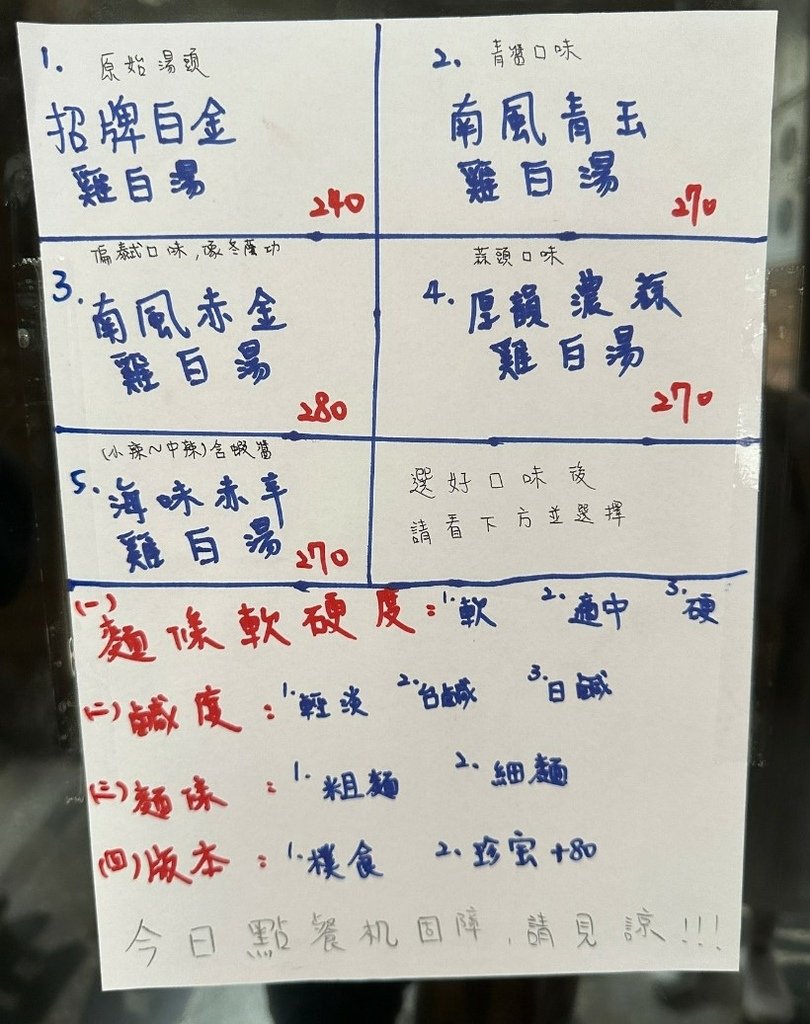 1. 原始湯頭
招牌白金
雞白湯
240
2. 青醬口味
南風青玉
雞白湯
270
偏泰式口味,像冬蔭功
3. 南風赤金
雞白湯
280
蒜頭口味
4. 厚韻濃蒜
雞白湯
270
(小辣~中辣)含蝦醬
5. 海味赤辛
雞白湯
270
選好口味後
請看下方並選擇
(一)麵條軟硬度:1.軟 2.適中 3.硬
(二)鹹度:1.輕淡 2.台鹹 3.日鹹
(三)麵條:1.粗麵 2.細麵
(四)版本:1.樸食 2.珍宝+80
今日點餐机固障,請見諒!!!